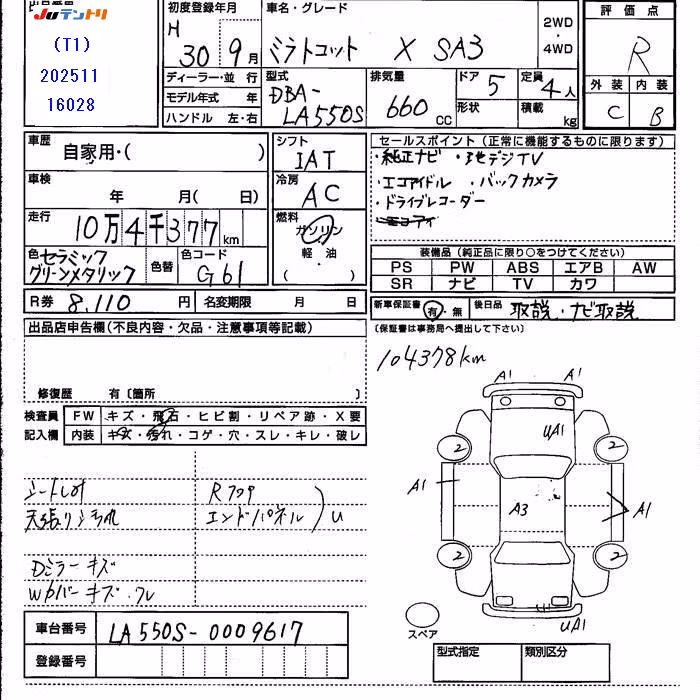 JUテントリ
(T1)
202511
16028
初度登録年月
H
30年 9月
車名・グレード
ミラトコット X SA3
2WD
・
4WD
評価点
R
外装 内装
C B
ディーラー・並行
モデル年式 年
ハンドル 左・右
型式
DBA-
LA550S
排気量
660 CC
ドア 5
形状
定員 4人
積載 kg
車歴
自家用・( )
車検
年 月( 日)
走行
10万4千377km
色 セラミック
グリーンメタリック
色替
色コード
G61
シフト
IAT
冷房
AC
燃料
ガソリン
軽・油
( )
セールスポイント(正常に機能するものに限ります)
・純正ナビ ・地デジTV
・エコアイドル ・バックカメラ
・ドライブレコーダー
装備品(純正品に限り○をつけてください)
PS PW ABS エアB AW
SR ナビ TV カワ
R券 8,110円 名変期限 月 日
新車保証書 有・無 後日品 取説・ナビ取説
(保証書は事務局へ提出して下さい)
出品店申告欄(不良内容・欠品・注意事項等記載)
104378km
修復歴 有〔箇所 〕
検査員 FW キズ・飛石・ヒビ割・リペア跡・X要
記入欄 内装 キズ・汚れ・コゲ・穴・スレ・キレ・破レ
A1 A1
UA1
2 2
A1 A3 A1
2 2
UA1
スペア
R フロア
天張り汚れ エンドパネル U
Dミラーキズ
車台番号 LA550S-0009617
登録番号
型式指定 類別区分